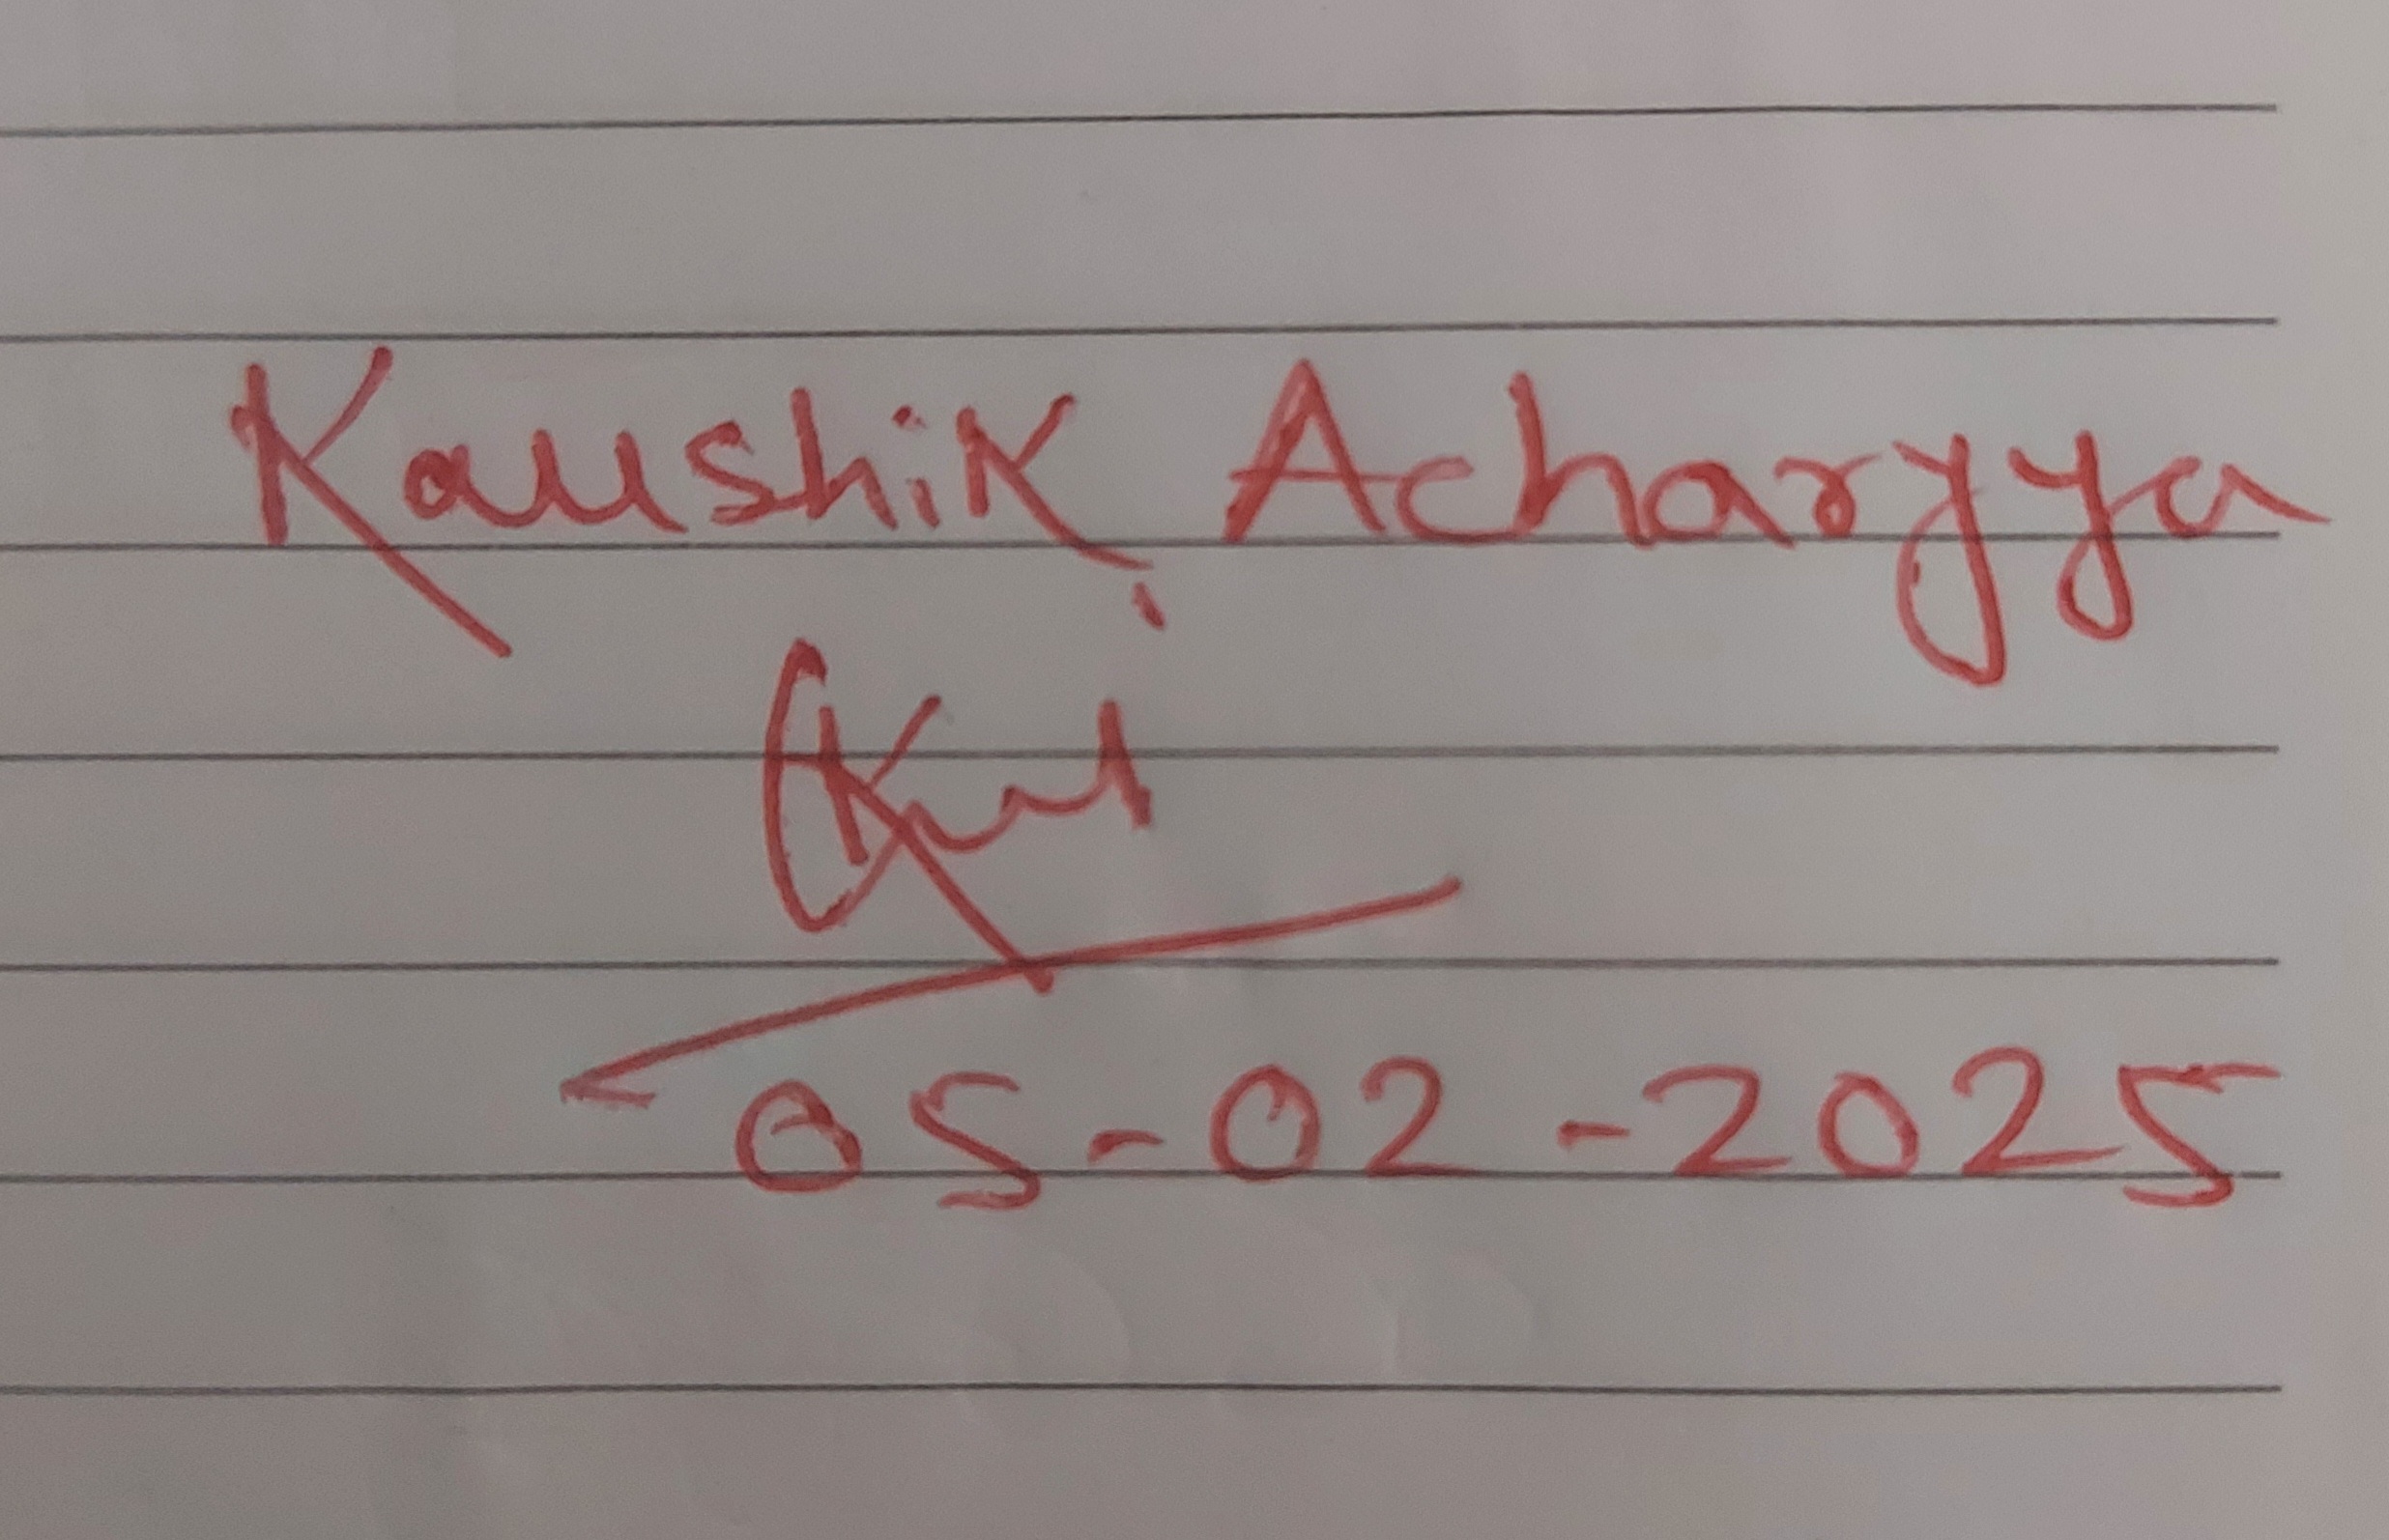 Kaushik Acharyya
05-02-2025